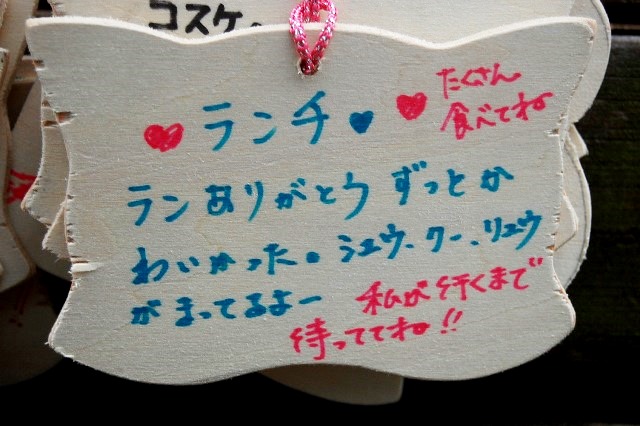 コスケ。
ランチ
たくさん
食べてね
ラン ありがとう ずっとか
わいかった。シュウ、クー、リュウ
がまってるよー
私が行くまで
待っててね!!